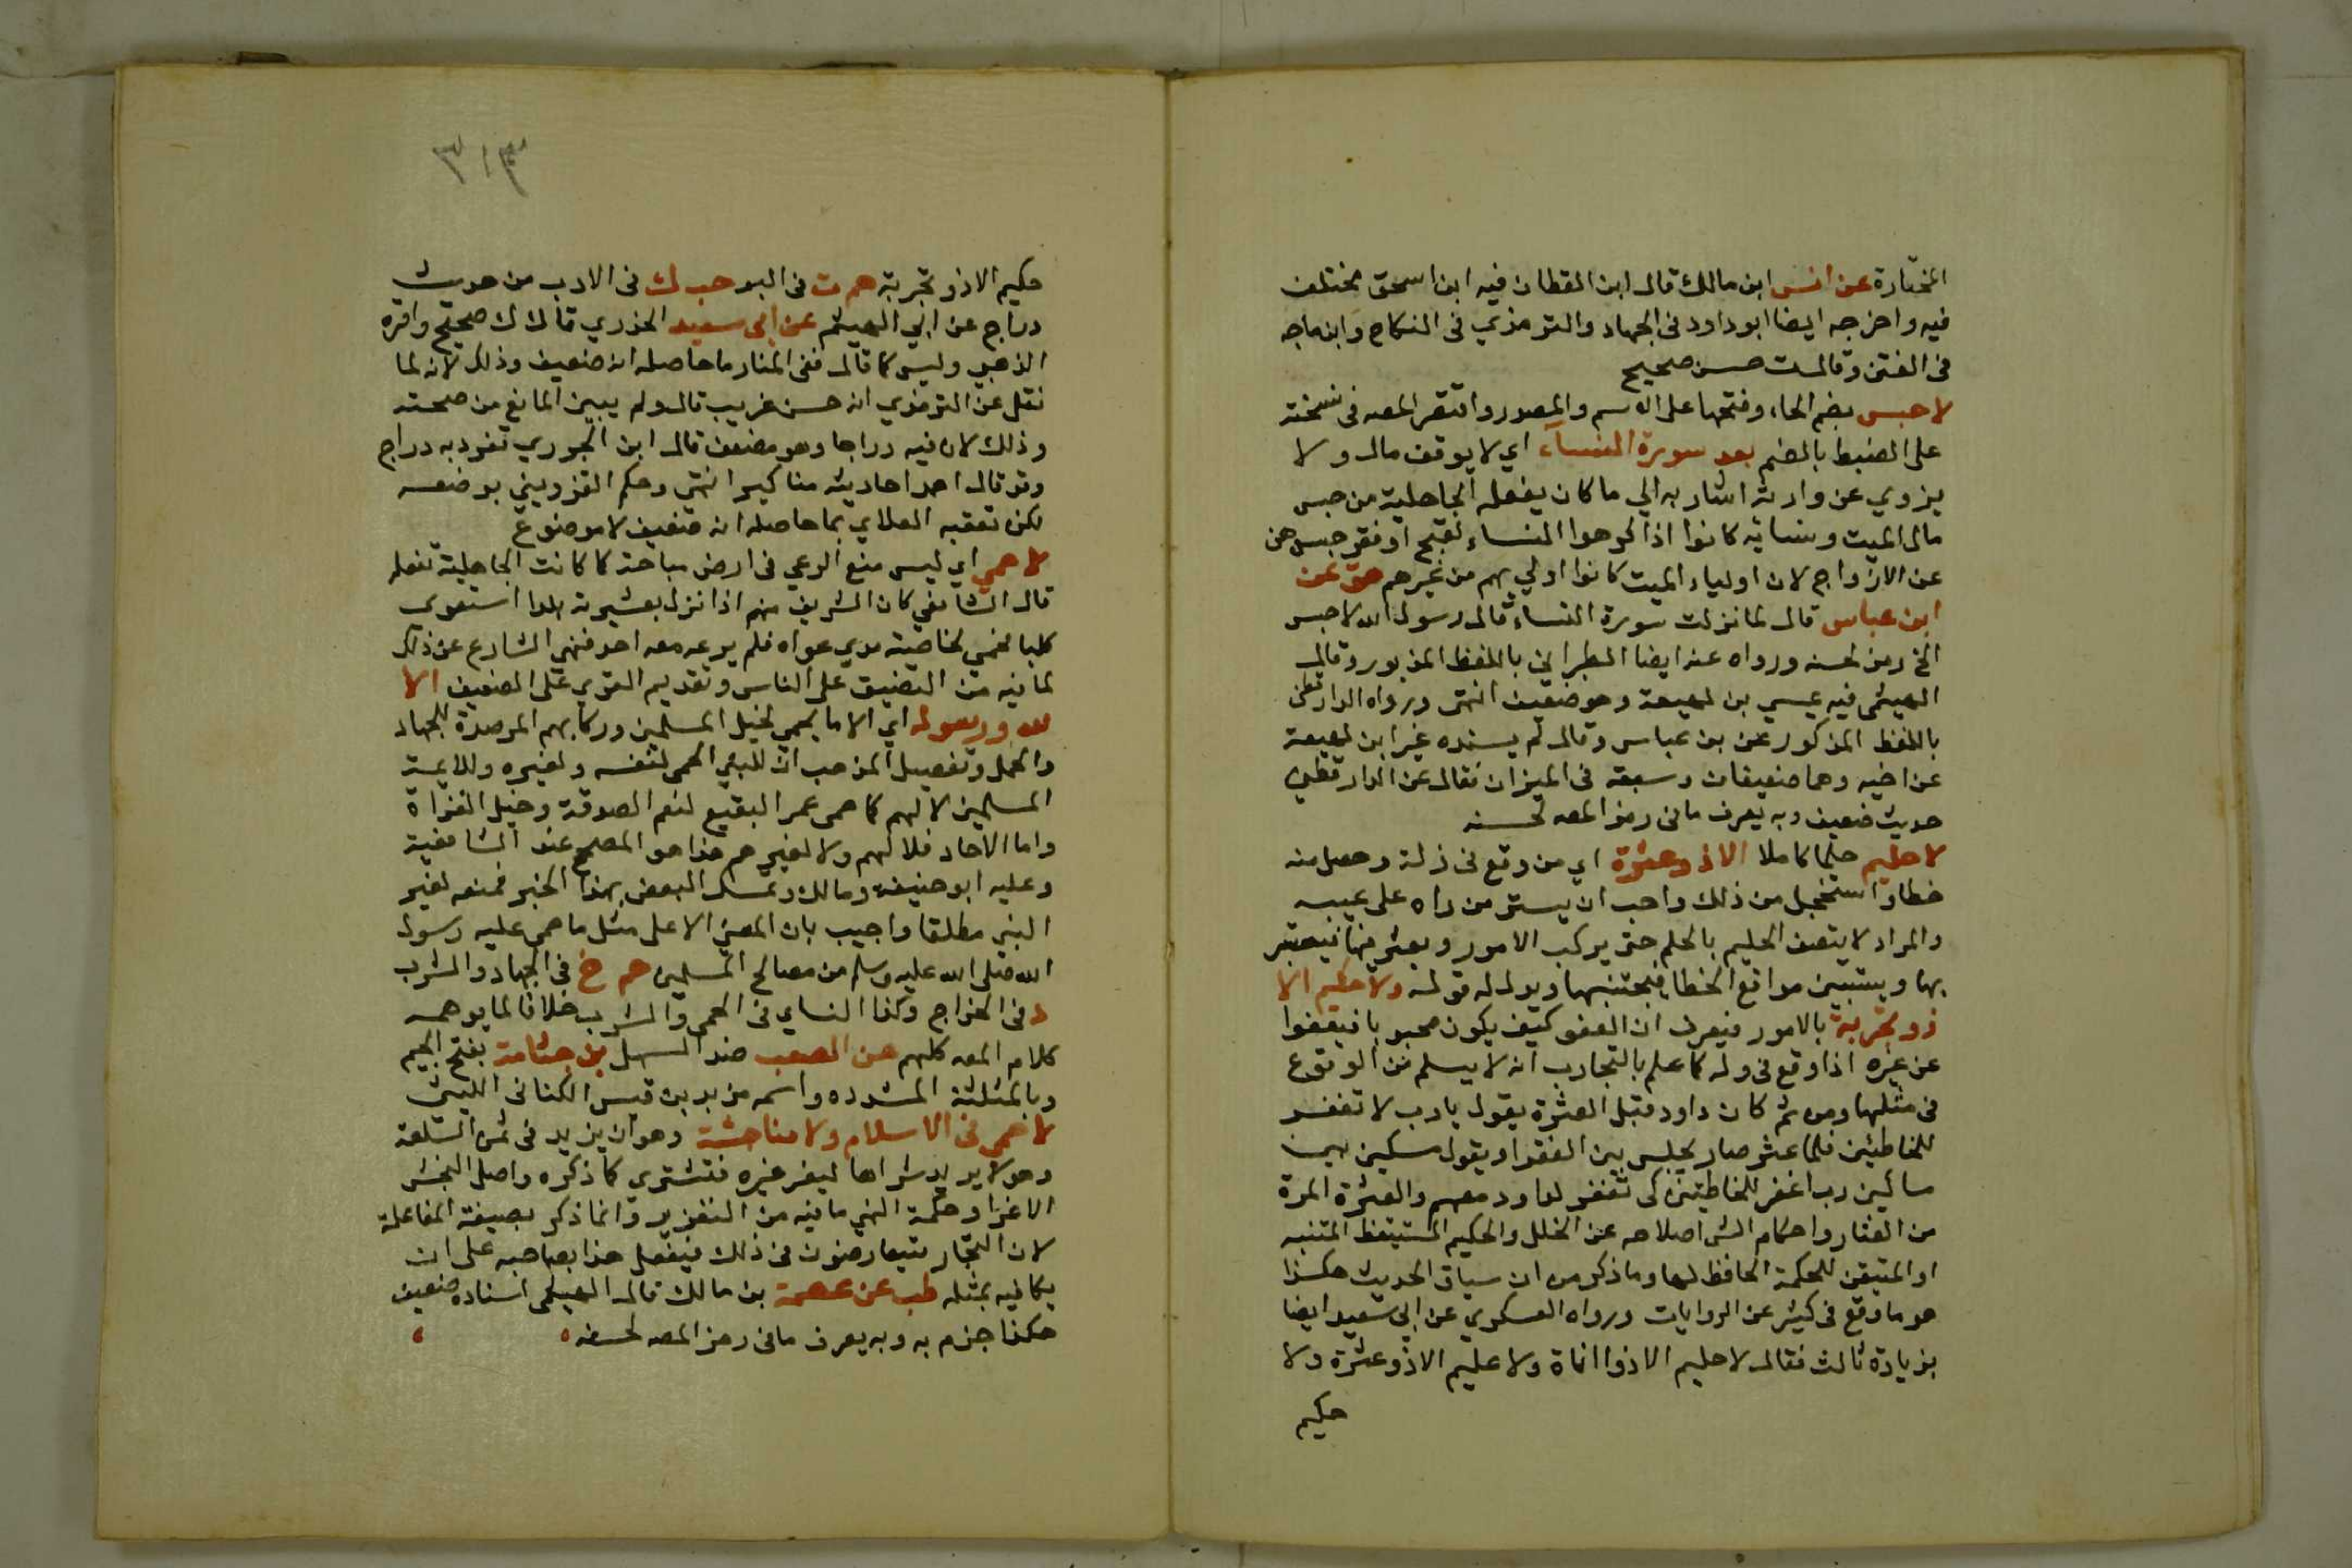 المختارة عن انس ابن مالك قال ابن القطان فيه ابن اسحق مختلف
فيه واخرجه ايضا ابو داود فى الجهاد والترمذي فى النكاح وابن ماجه
فى الفتن وقال ت حسن صحيح
لا حبس بضم الحاء وفتحها على الاسم والمصدر واقتصر المصه فى نسخته
على الضبط بالضم بعد سورة النساء اي لا يوقف مال ولا
يزوي عن وارثه اشار به الي ما كان يفعله الجاهلية من حبس
مال الميت ونسايه كانوا اذا كرهوا النساء لقبح او فقر حبسوهن
عن الازواج لان اولياء الميت كانوا اولي بهم من غيرهم هق عن
ابن عباس قال لما نزلت سورة النساء قال رسول الله لا حبس
الخ رمز لحسنه ورواه عنه ايضا الطبراني باللفظ المزبور وقال
الهيثمى فيه عيسي بن لهيعة وهو ضعيف انتهى ورواه الدارقطنى
باللفظ المذكور عن بن عباس وقال لم يسنده غير ابن لهيعة
عن اخيه وهما ضعيفان وسبقه فى الميزان فقال عن الدارقطني
حديث ضعيف وبه يعرف مافى رمز المصه لحسنه
لا حليم حلما كاملا الا ذو عثرة اي من وقع فى زلة وحصل منه
خطا واستخجل من ذلك واحب ان يستر من راه على عيبه
والمراد لا يتصف الحليم بالحلم حتى يركب الامور ويعثر فيها فيعتبر
بها ويستبين مواقع الخطا فيجتنبها ويدل له قوله ولا حكيم الا
ذو تجربة بالامور فيعرف ان العفو كيف يكون محبوبا فيعفوا
عن غيره اذا وقع فى زلة كما علم بالتجارب انه لا يسلم من الوقوع
فى مثلها ومن ثم كان داود قبل العثرة يقول يارب لا تغفر
للخاطئين فلما عثر صار يجلس بين الفقرا ويقول مسكين بين
مساكين رب اغفر للخاطئين كى تغفر لداود معهم والعثرة المرة
من العثار واحكام الشى اصلاحه عن الخلل والحكيم المستيقظ المتنبه
او المتيقن للحكمة الحافظ لها وما ذكر من ان سياق الحديث هكذا
هو ما وقع فى كثير عن الروايات ورواه العسكري عن ابي سعيد ايضا
بزيادة ثالث فقال لا حليم الا ذوا اناة ولا عليم الا ذو عثرة ولا
حكيم
٣١٣
حكيم الا ذو تجربة حم ت فى البر حب ك فى الادب من حديث
دراج عن ابي الهيثم عن ابى سعيد الخدري قال ك صحيح واقره
الذهبي وليس كما قال ففى المنار ما حاصله انه ضعيف وذلك لانه لما
نقل عن الترمذي انه حسن غريب قال ولم يبين المانع من صحته
وذلك لان فيه دراجا وهو مضعف قال ابن الجوزي تفرد به دراج
وقد قال احمد احاديثه مناكير انتهى وحكم القزويني بوضعه
لكن تعقبه العلاي بما حاصله انه ضعيف لا موضوع
لا حمي اي ليس منع الرعي فى ارض مباحة كما كانت الجاهلية تفعله
قال الشافعي كان الشريف منهم اذا نزل بعشيرته بلدا استعوى
كلبا فحمي لخاصته مدي عواه فلم يرعه معه احد فنهي الشارع عن ذلك
لما فيه من التضييق على الناس وتقديم القوي على الضعيف الا
لله ورسوله اي الا ما يحمي لخيل المسلمين وركابهم المرصدة للجهاد
والحمل وتفصيل المذهب ان للنبي الحمى لنفسه ولغيره وللايمة
المسلمين لا لهم كما حمى عمر البقيع لنعم الصدقة وخيل الغزاة
واما الاحاد فلا لهم ولا لغيرهم هذا هو المصحح عند الشافعية
وعليه ابو حنيفة ومالك وتمسك البعض بهذا الخبر فمنعه لغير
النبي مطلقا واجيب بان المعنى الا على مثل ما حمى عليه رسول
الله صلى الله عليه وسلم من مصالح المسلمين حم خ فى الجهاد والشرب
د فى الخراج وكذا النساي فى الحمى والشرب خلافا لما يوهمه
كلام المصه كلهم عن الصعب ضد السهل بن جثامة بفتح الجيم
وبالمثلثة المشدده واسمه من يد بن قيس الكنانى الليثى
لا حمي فى الاسلام ولا مناجشة وهو ان يزيد فى ثمن السلعة
وهو لا يريد شراها ليغر غيره فتشتري كما ذكره واصل النجش
الاغرا وحكمة النهي ما فيه من التغرير وانما ذكر بصيغة المفاعلة
لان التجار يتعارضون فى ذلك فيفعل هذا بصاحبه على ان
يكافيه بمثله طب عن عصمة بن مالك قال الهيثمى اسناده ضعيف
هكذا جزم به وبه يعرف مافى رمز المصه لحسنه